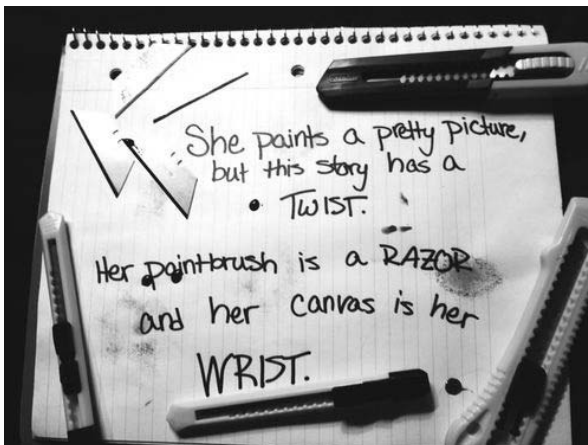 She paints a pretty picture,
but this story has a
TWIST.
Her paintbrush is a RAZOR
and her canvas is her
WRIST.